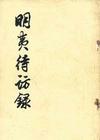 明夷待访录